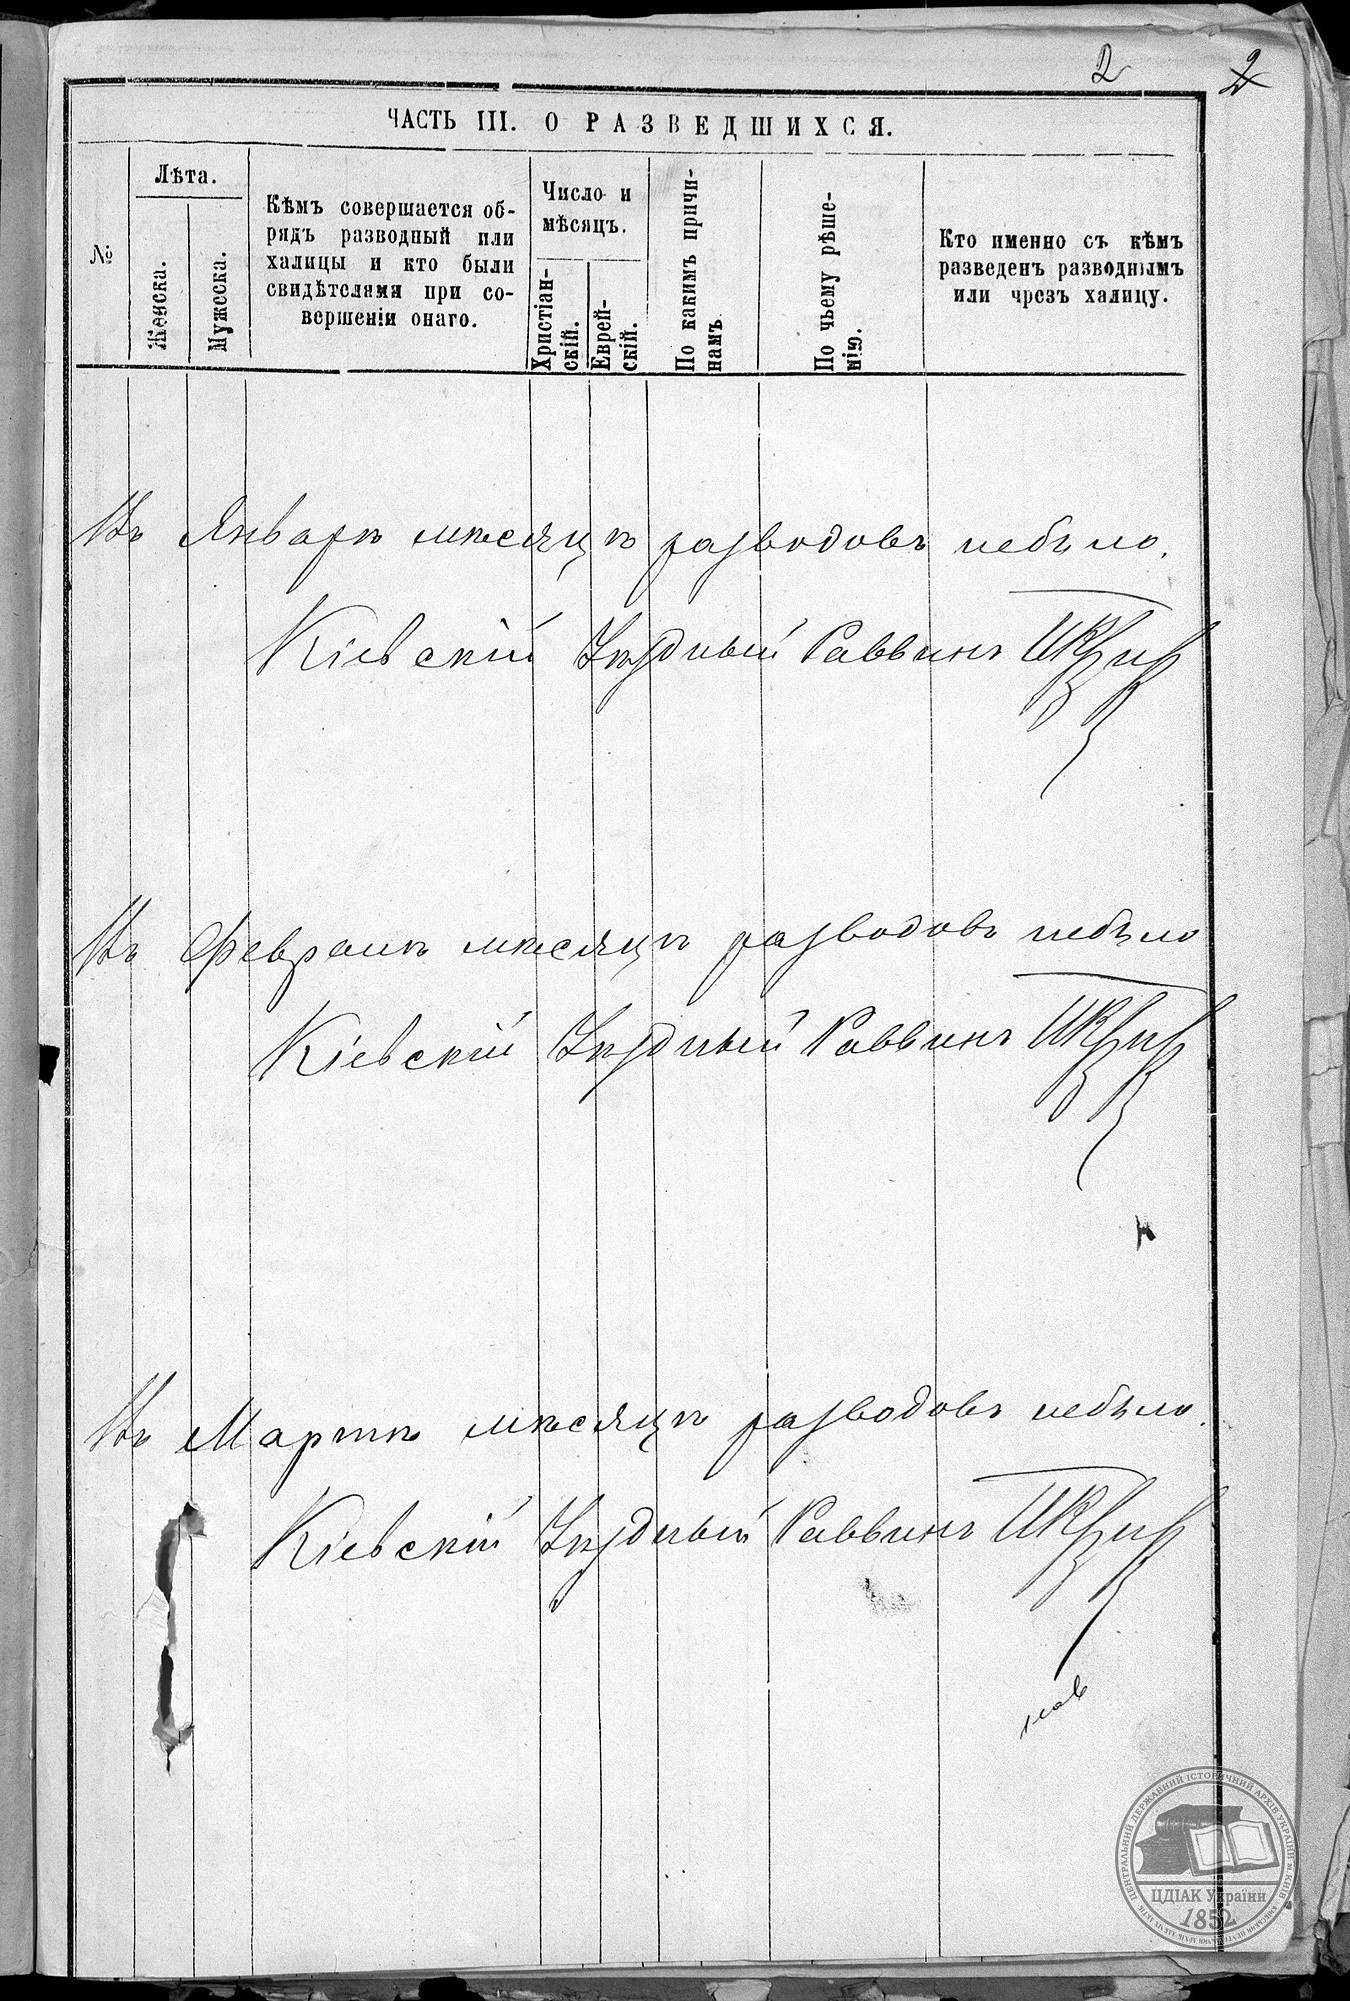 2 2
ЧАСТЬ III. О РАЗВЕДШИХСЯ.
№
Лѣта.
Женска.
Мужеска.
Кѣмъ совершается об-
рядъ разводный или
халицы и кто были
свидѣтелями при со-
вершеніи онаго.
Число и
мѣсяцъ.
Христіан-
скій.
Еврей-
скій.
По какимъ причи-
намъ.
По чьему рѣше-
нію.
Кто именно съ кѣмъ
разведенъ разводнымъ
или чрезъ халицу.
Въ Январѣ мѣсяцѣ разводовъ небыло.
Кіевскій Уѣздный Раввинъ
Въ Февралѣ мѣсяцѣ разводовъ небыло
Кіевскій Уѣздный Раввинъ
Въ Мартѣ мѣсяцѣ разводовъ небыло.
Кіевскій Уѣздный Раввинъ
ЦЕНТРАЛЬНИЙ ДЕРЖАВНИЙ ІСТОРИЧНИЙ АРХІВ УКРАЇНИ м.КИЇВ
ЦДІАК України
1852